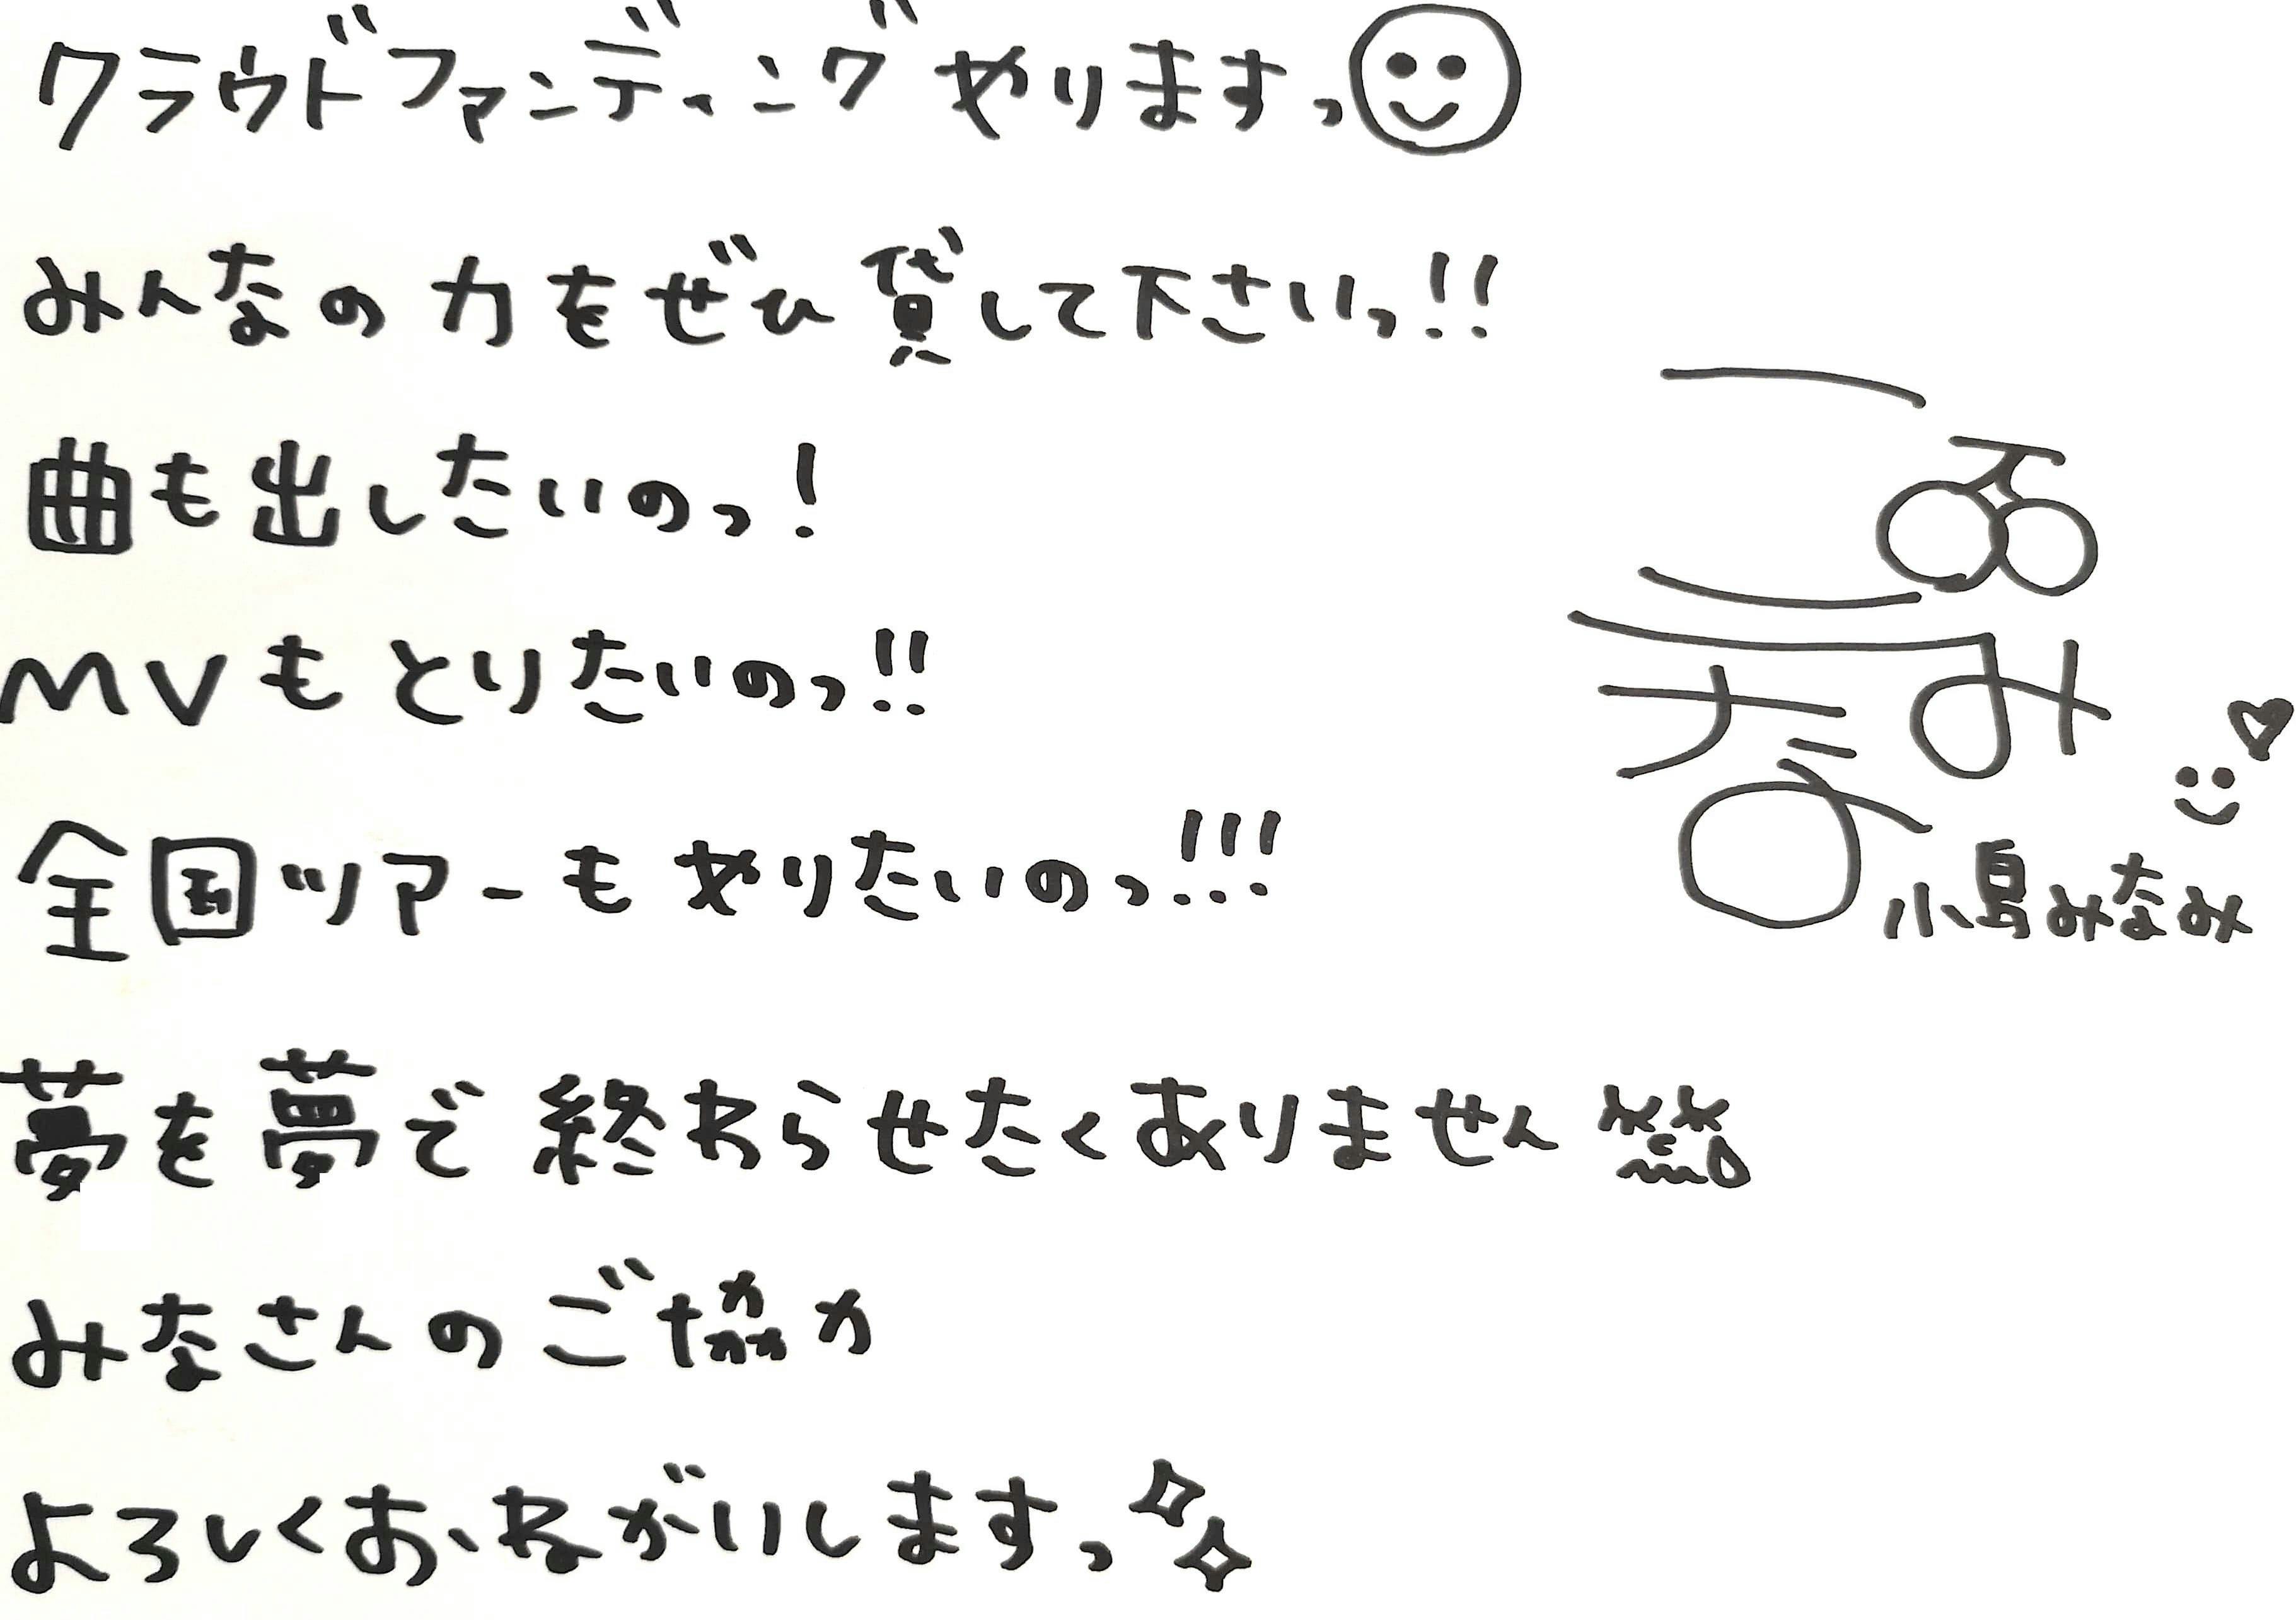 クラウドファンディングやりますっ
みんなの力をぜひ貸して下さいっ!!
曲も出したいのっ!
MVもとりたいのっ!!
全国ツアーもやりたいのっ!!!
小島みなみ
夢を夢で終わらせたくありません
みなさんのご協力
よろしくおねがいしますっ